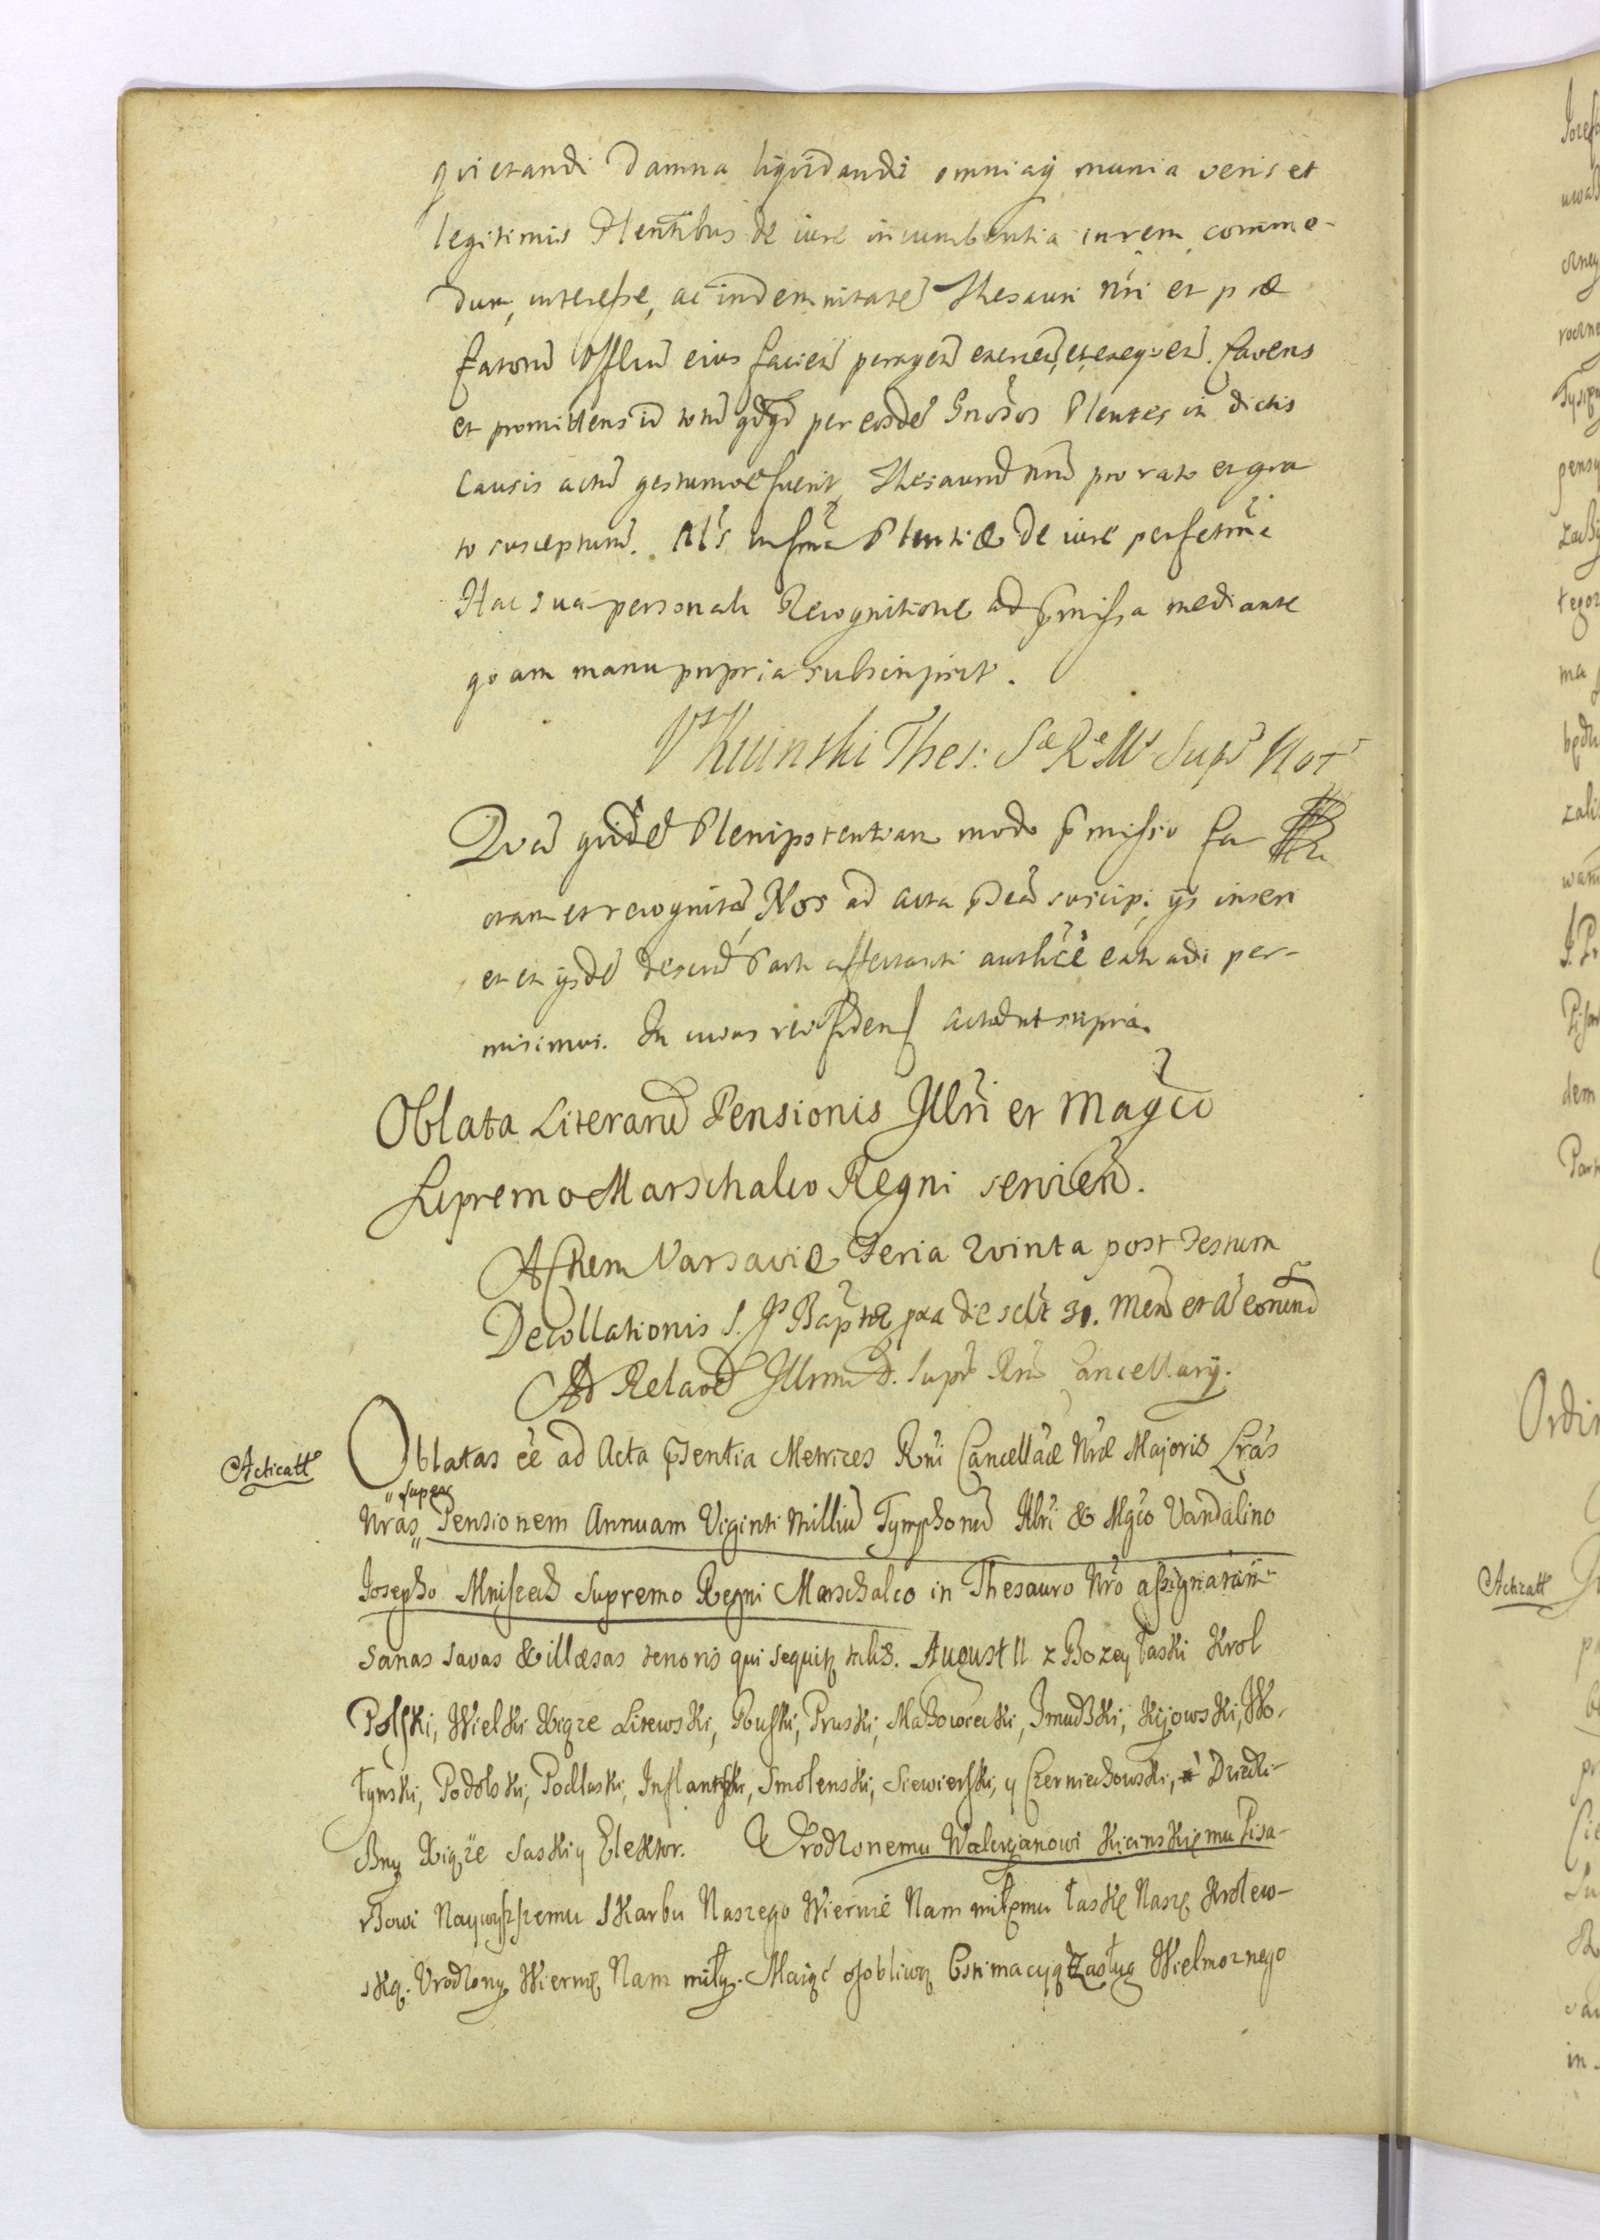 quietandi Damna liquidandi omniaq̃ munia veris et
legitimis Plentibus de iure incumbentia in rem commo-
dum, interesse, ac indemnitatẽ Thesauri nri et præ
fatorũ Offlium eius faciend peragend exercend, et exequend. favens
et promittens id totũ qdqd per eosdẽ Gnosos Plentes in dictis
Causis actũ gestumve fuerit, Thesaurũ nrm pro rato et gra
to suscepturũ. Als in forma Plentiæ de iure perfectma
Hac sua personali Recognitione ad p̃missa mediante
quam manu propria subscripsit.
Vs Kicinski Thes: Sæ Ræ Mis Supr Notr
Quã quidẽ Plenipotentiam modo p̃misso fa
ctam et recognitã, Nos ad acta p̃sentia suscipi, ijs inseri
et ex ijsdẽ descriptũ Parti affectanti authẽ extradi per-
misimus. In cuius rei fidem Actũ ut supra.
Oblata Literarũ Pensionis Illri et Magco
Supremo Marschalco Regni servien.
Actum Varsaviæ Feria Quinta post Festum
Decollationis S. Js Baptæ pxa die sclt 31. Mens et A eorund
Ad Relaoẽ Illrmi D. Supr Rni Cancellarij.
Acticatt
Oblatas cẽ ad Acta p̃sentia Metrices Rni Cancellaæ Nræ Majoris Lras
super
Nras, Pensionem Annuam Viginti Milliũ Tymphonũ Illri & Mgco Vandalino
Josepho Mniszech Supremo Regni Marschalco in Thesauro Nro assignatam
Sanas Savas & illæsas tenoris qui sequitr talis. August II z Bozey Łaski Krol
Polski, Wielki Xiąze Litewski, Ruski, Pruski, Mazowiecki, Zmudzki, Kijowski, Wo-
łynski, Podolski, Podlaski, Inflantski, Smolenski, Siewierski, y Czerniechowski, Dziedzi-
czny Xiąże Saski y Elektor. Urodzonemu Waleryanowi Kicinskiemu Pisa-
rzowi Naywyższemu Skarbu Naszego Wiernie Nam miłemu łaskę Naszę Krolew-
ską. Urodzony Wiernie Nam miły. Maiąć osobliwą Estimacyą Zasług Wielmoznego
Acticatt